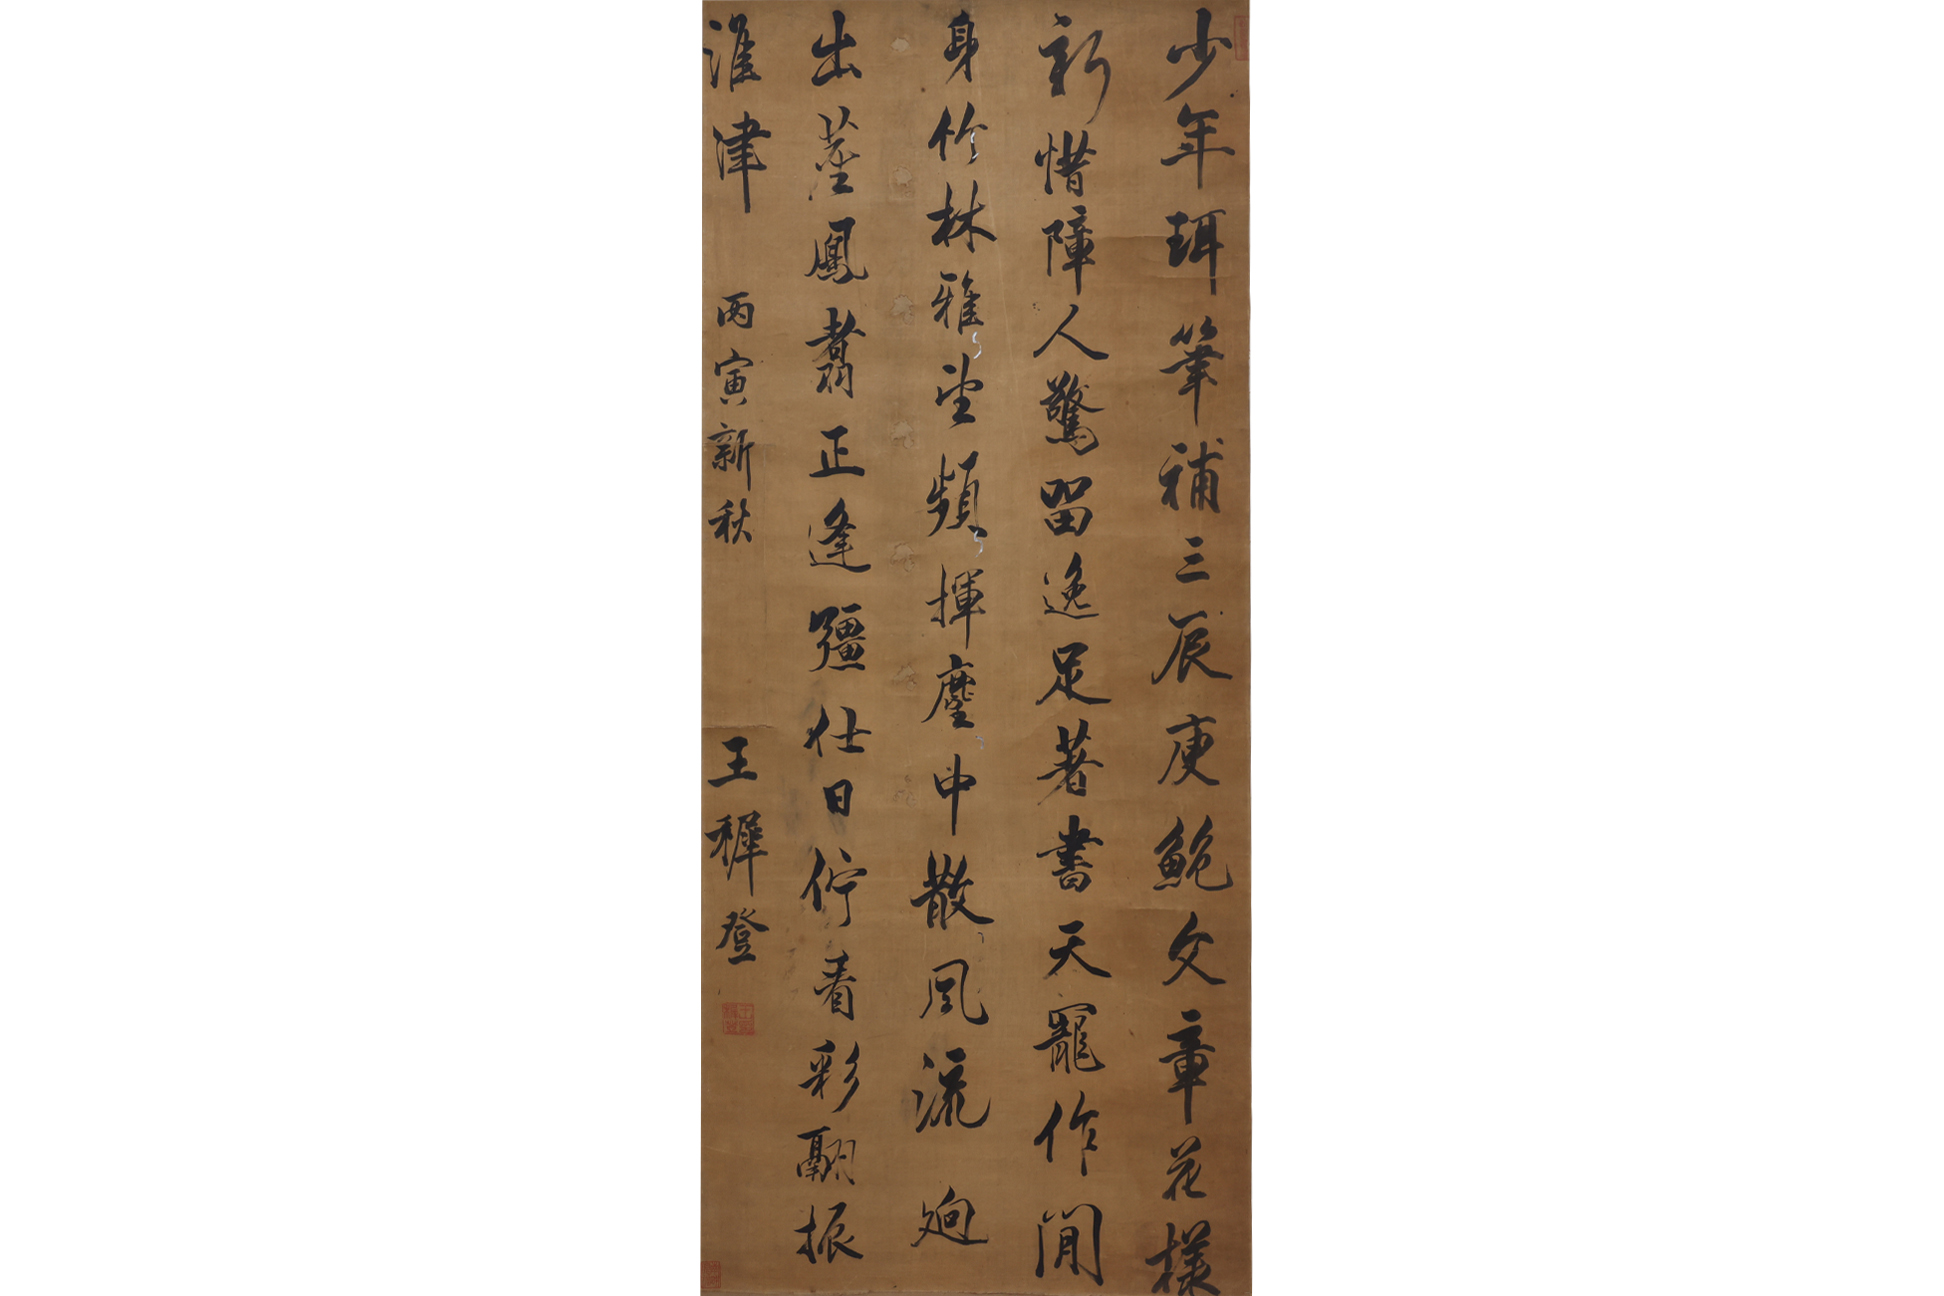 少年珥筆補三辰庾鮑文章花樣
新惜障人驚留逸足著書天寵作閒
身竹林雅望頻揮麈中散風流迥
出塵鳳翥正逢彊仕日佇看彩翮振
淮津
丙寅新秋
王穉登